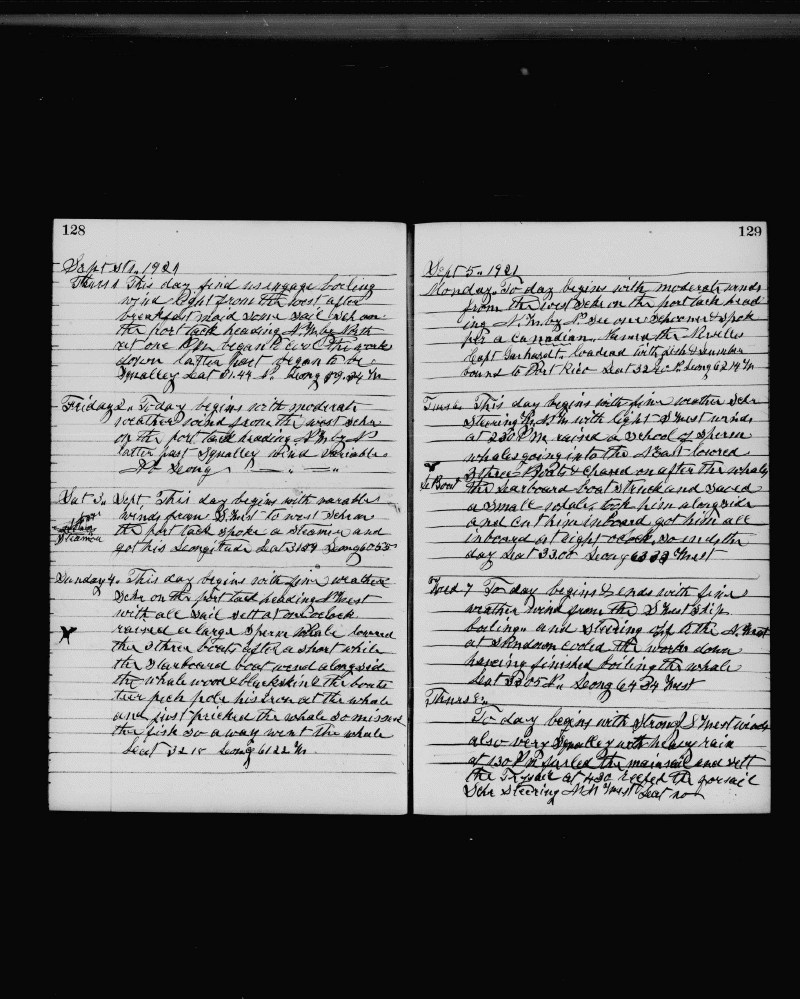 128
Sept st 1, 1921
Thurs 1 This day find us engage boiling
wind light from the west after
breakfast maid some sail Schr on
the port tack heading N.W. by North
at one P.M. began to cool the work
down latter part began to be
Squalley Lat 31.44 N. Long 59.24 W
Friday 2. To day begins with moderate
weather wind from the west Schr
on the port tack heading N.W. by N
latter part Squalley wind variable
Long
Sat 3. Sept This day begins with varable
winds from S. West to west Schr on
the port tack spoke a Steamer and
got his Longitude Lat 3159 Long 6055
Steamer
Sunday 4. This day begins with fine weather
Schr on the port tack heading N West
with all sail sett at one oclock
raised a large Sperm Whale lowered
the 3 three boats after a short while
the Starboard boat wend alongside
the whale wood & blackskin & the boats
teer pich pole his iron at the whale
and just pricked the whale so missed
the fish so a way went the whale
Lat 32 15 Long 61 22 W
129
Sept 5. 1921
Monday. To day begins with moderate winds
from the west Schr on the port tack head
ing N. W. by N. See one Schooner & spok
her a Canadian. Named the
Capt Gerhardt. loadead with fish & Lumber
bound to Port Rico Lat 32 N. Long 62 19 W
Tues 6. This day begins with fine weather Schr
Steering N. N W with light S West winds
at 2.30 P.M. raised a School of Sperm
whales going into the N East lowered
3 three Boats & epared on after the whales
S Boat the Starboard boat Struck and saved
a small whale, took him alongside
and cut him inboard got him all
inboard at eight oclock, so ends the
day Lat 33 00 Long 63 33 West
Wed 7 To day begins & ends with fine
weather wind from the S West Ship
boiling and Steering off to the N. West
at Sundown cooled the works down
having finished boiling the whale
Lat 33 05 N. Long 64 34 West
Thurs 8.
To day begins with Strong S West winds
also very Squalley with heavy rain
at 1.30 P M furled the mainsail and sett
the Trysail at 4.30 reefed the foresail
Schr Steering N N West Lat no